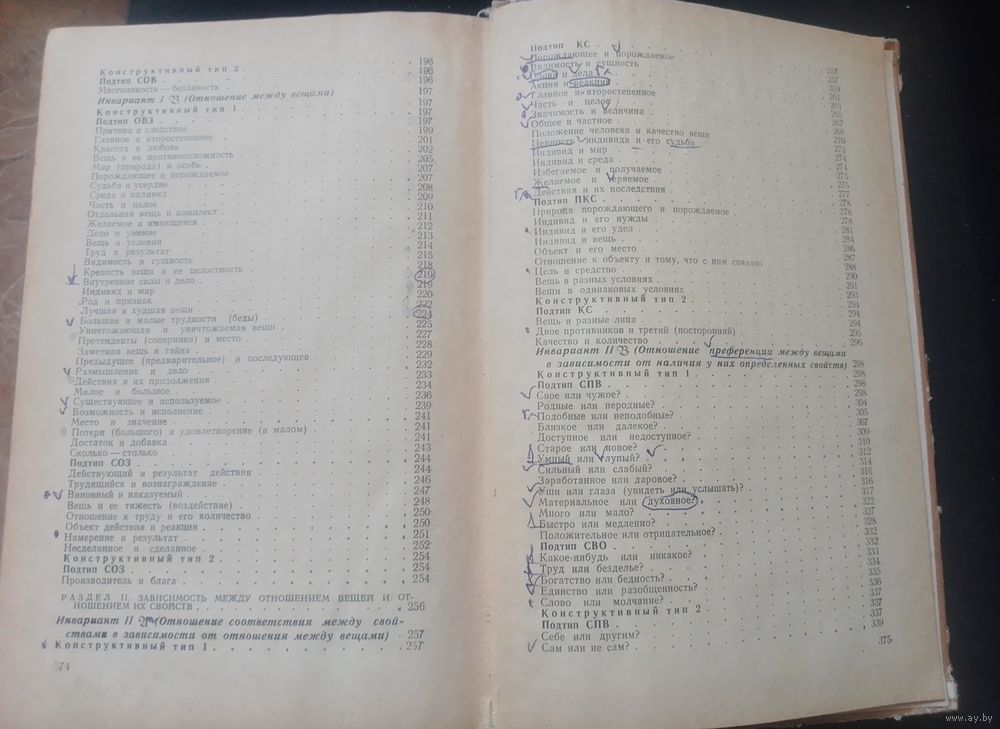 Конструктивный тип 2 . 196
Подтип СОВ . 196
Многоликость — безликость . 197
Инвариант I В (Отношение между вещами) 197
Конструктивный тип 1 . 197
Подтип ОВЗ . 197
Причина и следствие . 199
Главное и второстепенное . 201
Красота и любовь . 202
Вещь и ее противоположность . 205
Мир (природа) и особь . 207
Порождающее и порождаемое . 207
Судьба и усердие . 208
Среда и индивид . 209
Часть и целое . 210
Отдельная вещь и комплект . 211
Желаемое и имеющееся . 212
Дело и умение . 213
Вещь и условия . 214
Труд и результат . 215
Видимость и сущность . 218
Крепость вещи и ее целостность . 219
Внутренние силы и дело . 219
Индивид и мир . 220
Род и признак . 222
Лучшая и худшая вещи . 224
Большие и малые трудности (беды) . 225
Уничтожающая и уничтожаемая вещи . 227
Претенденты (соперники) и место . 228
Заметная вещь и тайна . 229
Предыдущее (предварительное) и последующее . 232
Размышление и дело . 233
Действия и их продолжения . 234
Малое и большое . 236
Существующее и используемое . 239
Возможность и исполнение . 241
Место и значение . 241
Потеря (большого) и удовлетворение (в малом) . 241
Достаток и добавка . 243
Сколько — столько . 244
Подтип СОЗ . 244
Действующий и результат действия . 246
Трудящийся и вознаграждение . 247
Виновный и наказуемый . 248
Вещь и ее тяжесть (воздействие) . 250
Отношение к труду и его количество . 250
Объект действия и реакция . 251
Намерение и результат . 252
Несделанное и сделанное . 254
Конструктивный тип 2 . 254
Подтип СОЗ . 254
Производитель и блага .
РАЗДЕЛ II. ЗАВИСИМОСТЬ МЕЖДУ ОТНОШЕНИЕМ ВЕЩЕЙ И ОТ-
НОШЕНИЕМ ИХ СВОЙСТВ . 256
Инвариант II (Отношение соответствия между свой-
ствами в зависимости от отношения между вещами) . 257
Конструктивный тип 1 . 257
374
Подтип КС .
Порождающее и порождаемое
Видимость и сущность
Слова и дела
Акция и реакция
Главное и второстепенное
Часть и целое
Значимость и величина
Общее и частное
Положение человека и качество вещи
Ценность индивида и его судьба
Индивид и мир
Индивид и среда
Избегаемое и получаемое
Желаемое и теряемое
Действия и их последствия
Подтип ПКС
Природа порождающего и порождаемое
Индивид и его нужды
Индивид и его удел
Индивид и вещь
Объект и его место
Отношение к объекту и тому, что с ним связано
Цель и средство
Вещь в разных условиях
Вещи в одинаковых условиях
Конструктивный тип 2
Подтип КС
Вещь и разные лица
Двое противников и третий (посторонний) . 295
Качество и количество . 296
Инвариант II В (Отношение преференции между вещами
в зависимости от наличия у них определенных свойств) 298
Конструктивный тип 1 . 298
Подтип СПВ . 298
Свое или чужое?
Родные или неродные?
Подобные или неподобные?
Близкое или далекое?
Доступное или недоступное?
Старое или новое?
Умный или глупый?
Сильный или слабый?
Заработанное или даровое?
Уши или глаза (увидеть или услышать)?
Материальное или духовное?
Много или мало?
Быстро или медленно?
Положительное или отрицательное?
Подтип СВО
Какое-нибудь или никакое?
Труд или безделье?
Богатство или бедность?
Единство или разобщенность?
Слово или молчание?
Конструктивный тип 2
Подтип СПВ
Себе или другим?
Сам или не сам?
375
www.ay.by